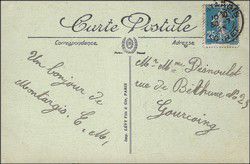 Carte Postale
Correspondance.
Adresse.
Un bonjour de
Montargis. C. M.
Mr Mme Désnoulet
rue de Béthune No 25
Tourcoing
Imp. LÉVY Fils & Cie, PARIS